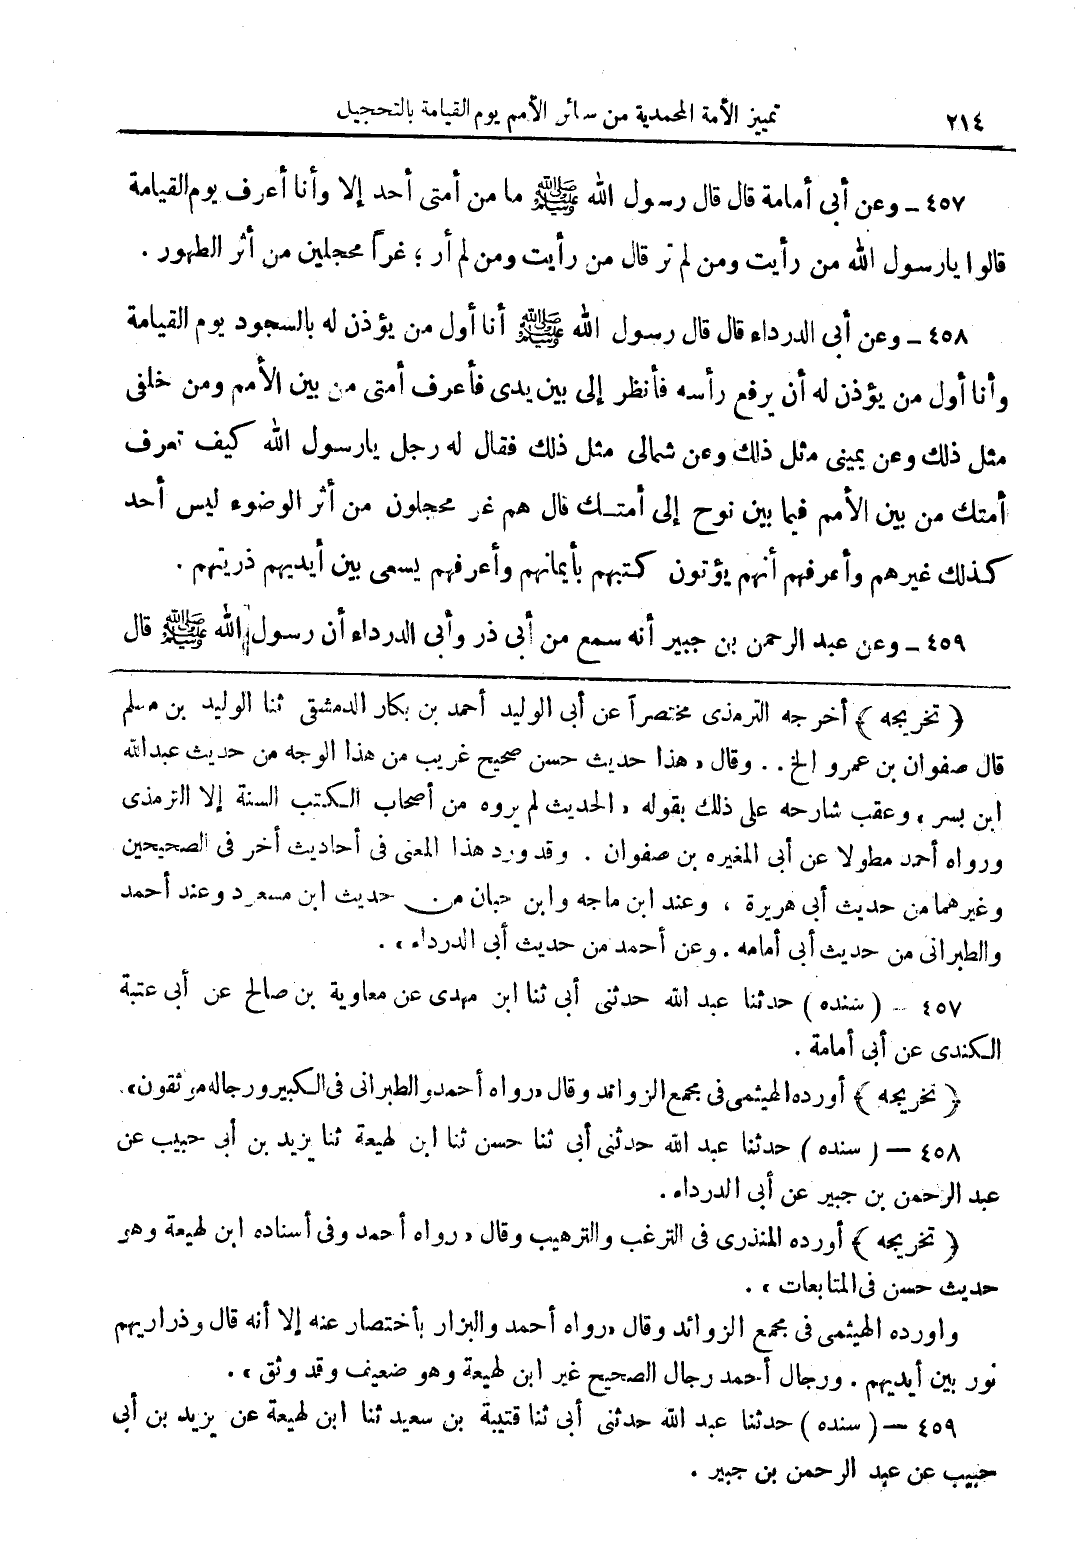 ٢١٤ تمييز الأمة المحمدية من سائر الأمم يوم القيامة بالتحجيل
٤٥٧ ـ وعن أبى أمامة قال قال رسول الله ﷺ ما من أمتى أحد إلا وأنا أعرف يوم القيامة
قالوا يارسول الله من رأيت ومن لم تر قال من رأيت ومن لم أر ؛ غراً محجلين من أثر الطهور .
٤٥٨ ـ وعن أبى الدرداء قال قال رسول الله ﷺ أنا أول من يؤذن له بالسجود يوم القيامة
وأنا أول من يؤذن له أن يرفع رأسه فأنظر إلى بين يدى فأعرف أمتى من بين الأمم ومن خلفى
مثل ذلك وعن يمينى مثل ذلك وعن شمالى مثل ذلك فقال له رجل يارسول الله كيف تعرف
أمتك من بين الأمم فيما بين نوح إلى أمتـك قال هم غر محجلون من أثر الوضوء ليس أحد
كذلك غيرهم وأعرفهم أنهم يؤتون كتبهم بأيمانهم وأعرفهم يسعى بين أيديهم ذريتهم .
٤٥٩ ـ وعن عبد الرحمن بن جبير أنه سمع من أبى ذر وأبى الدرداء أن رسول الله ﷺ قال
﴿ تخريجه ﴾ أخرجه الترمذى مختصراً عن أبى الوليد أحمد بن بكار الدمشقى ثنا الوليد بن مسلم
قال صفوان بن عمرو الخ . . وقال « هذا حديث حسن صحيح غريب من هذا الوجه من حديث عبدالله
ابن بسر » وعقب شارحه على ذلك بقوله « الحديث لم يروه من أصحاب الكتب الستة إلا الترمذى
ورواه أحمد مطولا عن أبى المغيره بن صفوان . وقد ورد هذا المعنى فى أحاديث أخر فى الصحيحين
وغيرهما من حديث أبى هريرة ، وعند ابن ماجه وابن حبان من حديث ابن مسعود وعند أحمد
والطبرانى من حديث أبى أمامه . وعن أحمد من حديث أبى الدرداء » .
٤٥٧ ـ ( سنده ) حدثنا عبد الله حدثنى أبى ثنا ابن مهدى عن معاوية بن صالح عن أبى عتبة
الكندى عن أبى أمامة .
﴿ تخريجه ﴾ أورده الهيثمى فى مجمع الزوائد وقال « رواه أحمد والطبرانى فى الكبير ورجاله موثقون » .
٤٥٨ — ( سنده ) حدثنا عبد الله حدثنى أبى ثنا حسن ثنا ابن لهيعة ثنا يزيد بن أبى حبيب عن
عبد الرحمن بن جبير عن أبى الدرداء .
﴿ تخريجه ﴾ أورده المنذرى فى الترغب والترهيب وقال « رواه أحمد وفى أسناده ابن لهيعة وهو
حديث حسن فى المتابعات » .
واورده الهيثمى فى مجمع الزوائد وقال « رواه أحمد والبزار بأختصار عنه إلا أنه قال وذراريهم
نور بين أيديهم . ورجال أحمد رجال الصحيح غير ابن لهيعة وهو ضعيف وقد وثق » .
٤٥٩ — ( سنده ) حدثنا عبد الله حدثنى أبى ثنا قتيبة بن سعيد ثنا ابن لهيعة عن يزيد بن أبى
حبيب عن عبد الرحمن بن جبير .